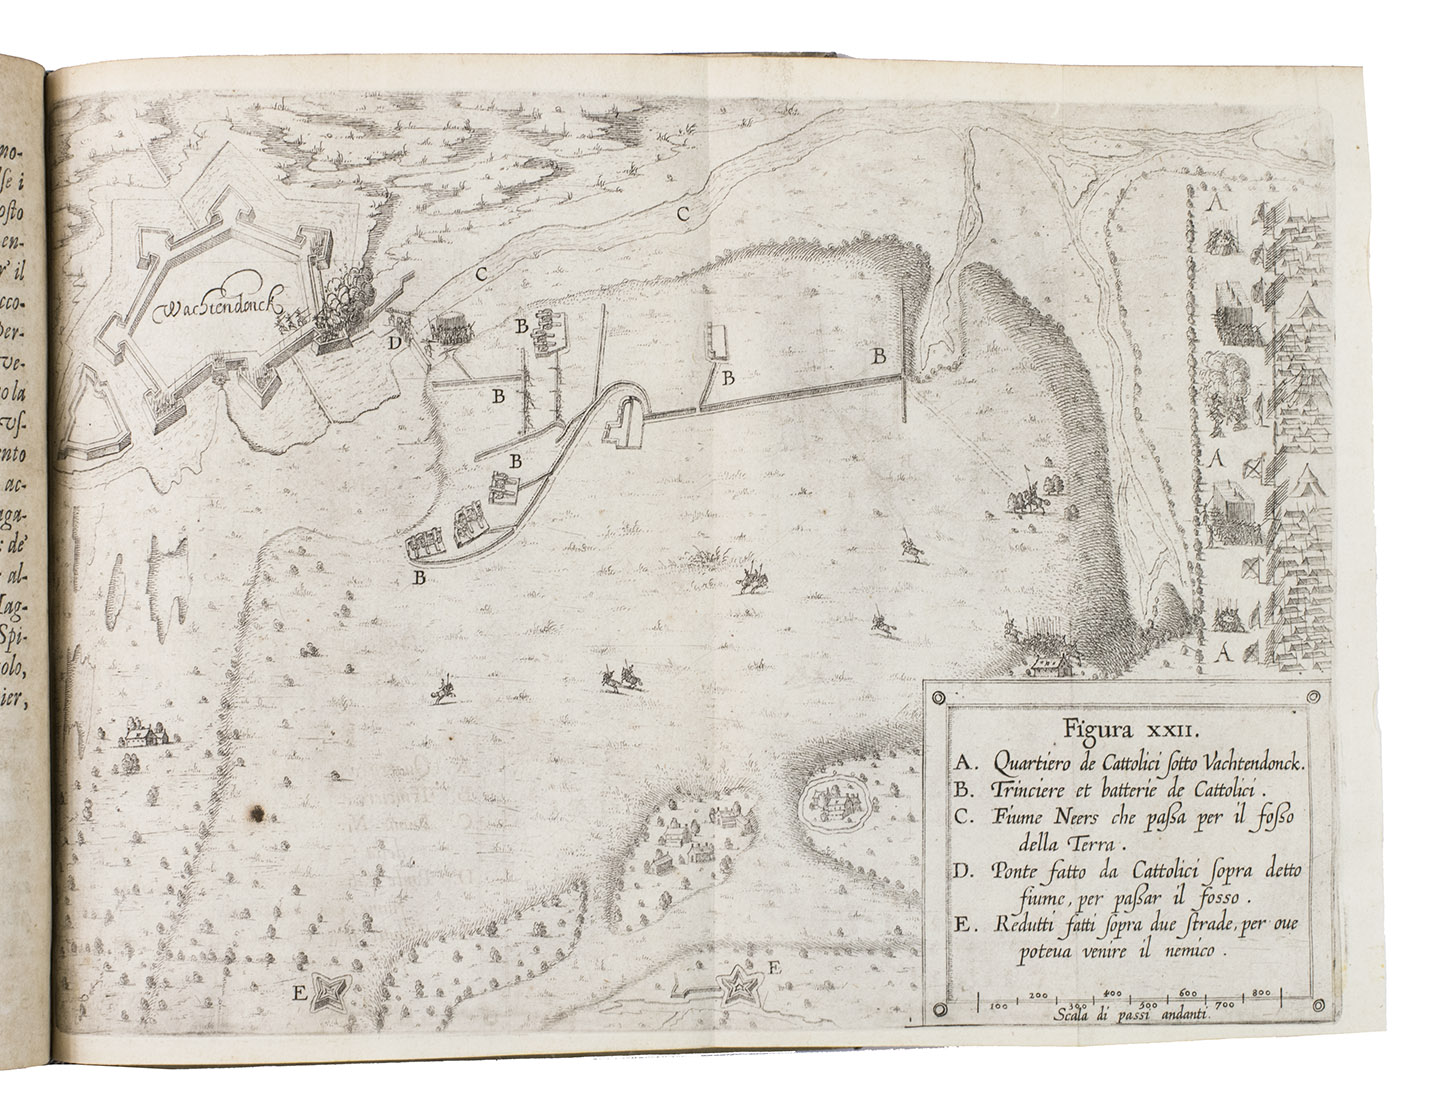 no-
se i
osto
en-
r' il
cco-
Per-
ve-
sola
Vs-
ento
ac-
aga-
: de'
al-
Mag-
Spi-
olo,
ier,
Wachtendonck
A
A
A
B
B
B
B
B
B
C
C
D
E
E
Figura XXII.
A. Quartiero de Cattolici ſotto Vachtendonck.
B. Trinciere et batterie de Cattolici .
C. Fiume Neers che paſsa per il foſso
della Terra .
D. Ponte fatto da Cattolici ſopra detto
fiume, per paſsar il fosso .
E. Redutti fatti ſopra due ſtrade, per oue
poteua venire il nemico .
100 200 300 400 500 600 700 800
Scala di passi andanti.